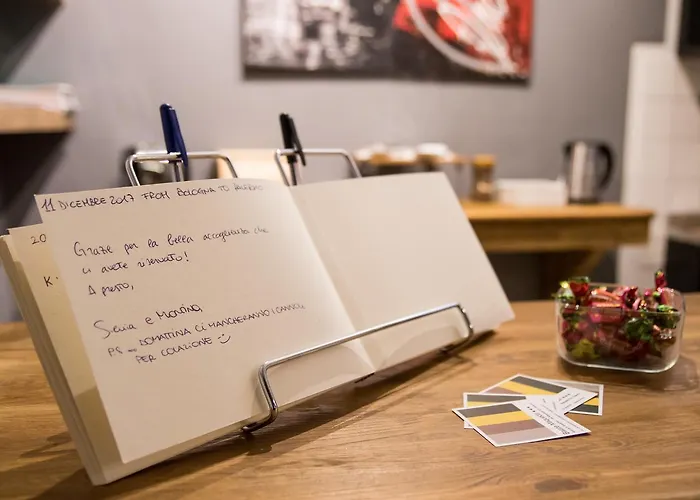 11 DICEMBRE 2017 FROM BOLOGNA TO PALERMO
Grazie per la bella accoglienza che
ci avete riservato!
A presto,
e
PS = DOMATTINA CI MANCHERANNO I CANNOLI
PER COLAZIONE :)
20
K.